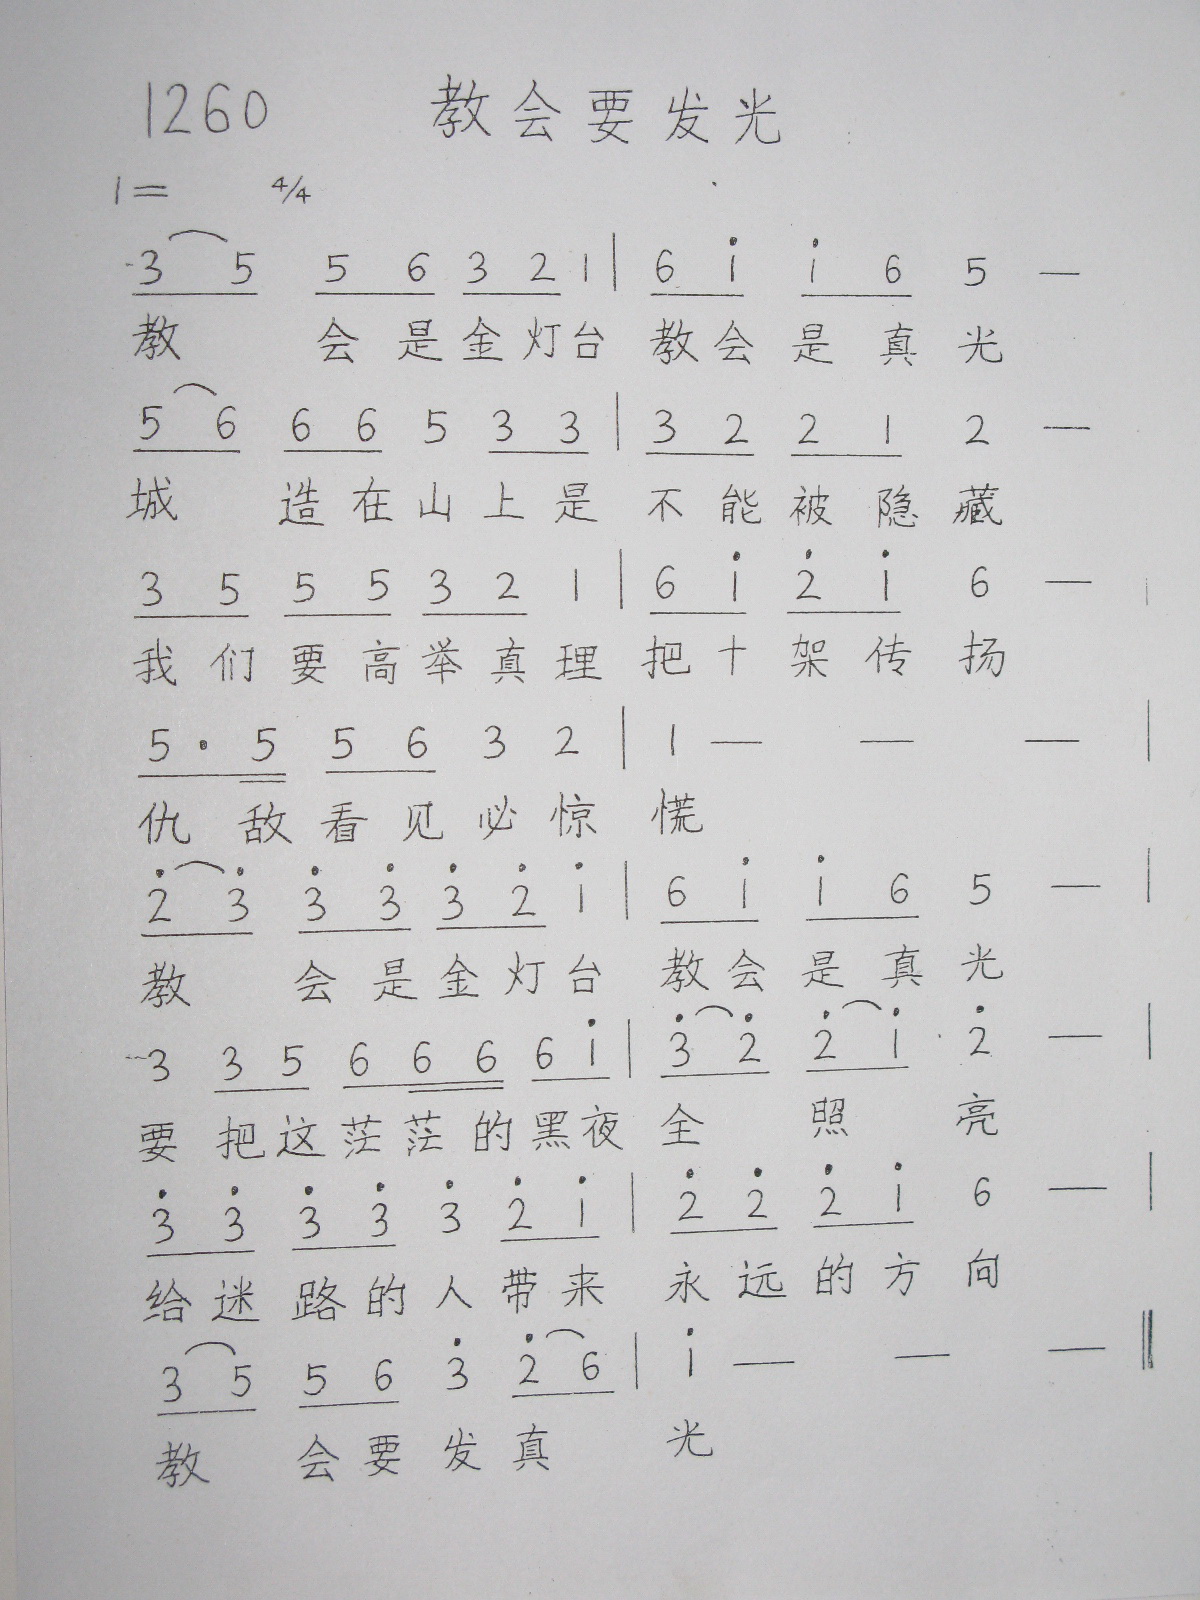 1260 教会要发光
1= 4/4
3 5 5 6 3 2 1 | 6 i i 6 5 —
教 会是金灯台 教会是真光
5 6 6 6 5 3 3 | 3 2 2 1 2 —
城 造在山上是 不能被隐藏
3 5 5 5 3 2 1 | 6 i 2̇ i 6 —
我们要高举真理 把十架传扬
5 · 5 5 6 3 2 | 1 — — — |
仇 敌看见必惊 慌
2̇ 3̇ 3̇ 3̇ 3̇ 2̇ i | 6 i i 6 5 — |
教 会是金灯台 教会是真光
3 3 5 6 6 6 6 i | 3̇ 2̇ 2̇ i 2̇ — |
要把这茫茫的黑夜 全 照 亮
3̇ 3̇ 3̇ 3̇ 3̇ 2̇ i | 2̇ 2̇ 2̇ i 6 — |
给迷路的人带来 永远的方向
3 5 5 6 3̇ 2̇ 6 | i — — — ‖
教 会要发真 光